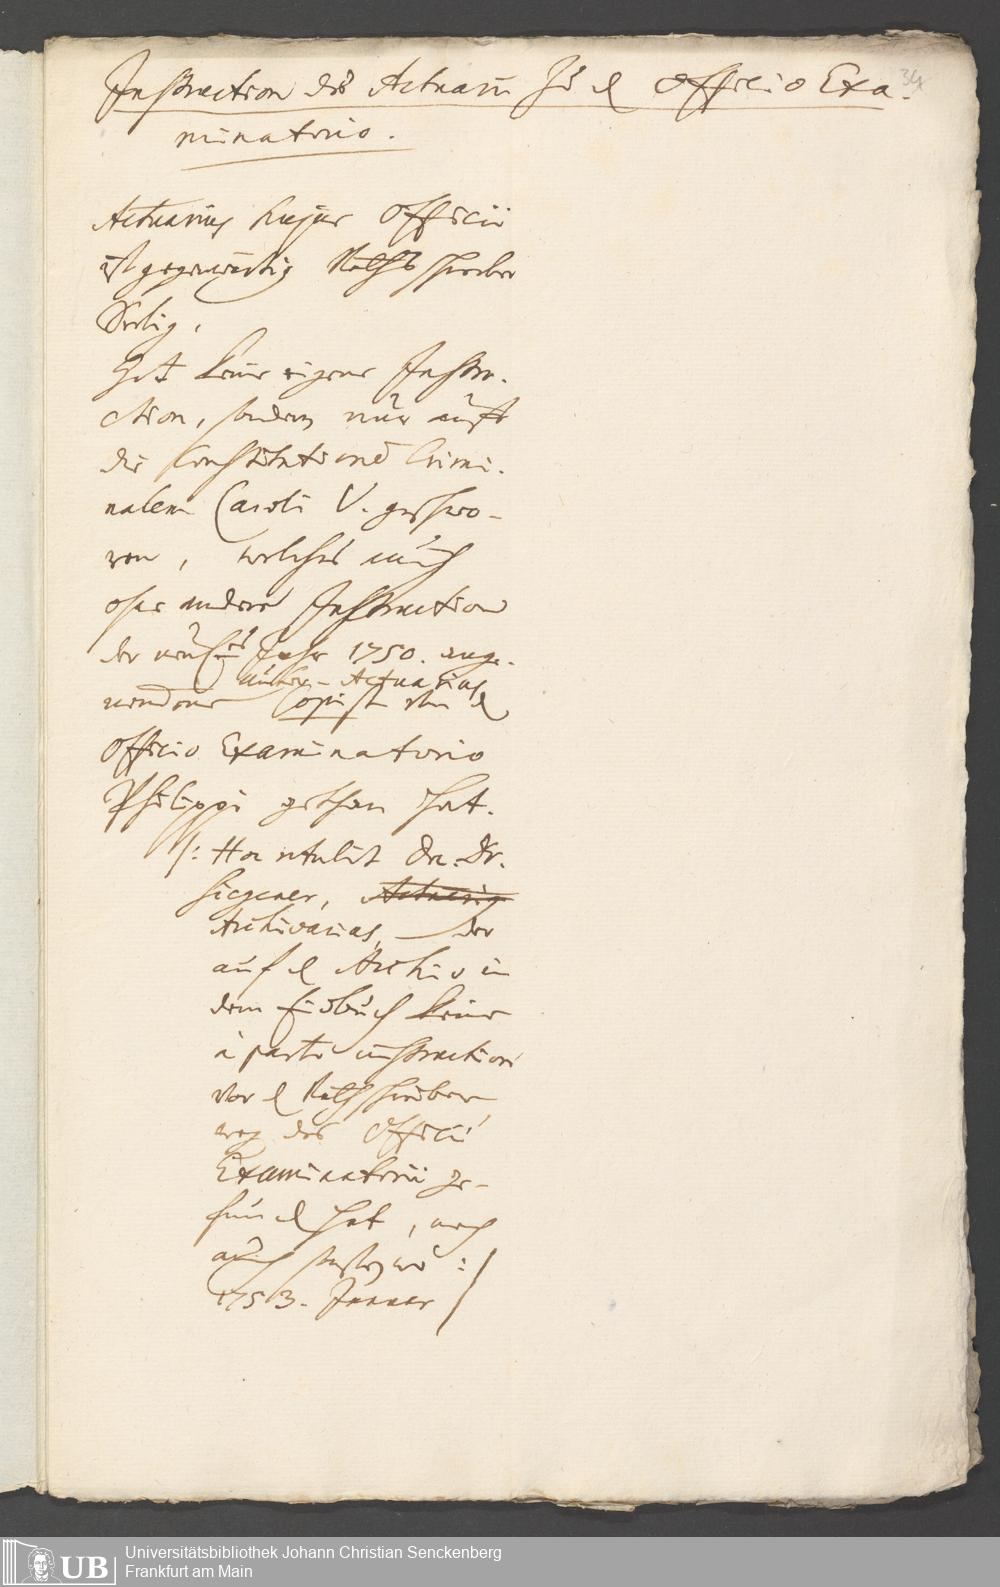 Instruction des Actuarii bei d Officio Exa-
34
minatorio.
Actuarius hujus Officii
ist gegenwärtig Rathsschreiber
Hat keine eigene Instru-
ction, sondern nur auff
die Constitutione Crimi-
nalem Caroli V. geschwo-
ren, welches auch
ohne andere Instruction
der Jahr 1750. ange-
Actuarius
nommene Copist von d
Officio Examinatorio
Philippi gethan hat.
/: Hoc retulit Dn. Dr.
Siegner,
Archivarius, der
auf d Archiv in
dem Eidbuch keine
à parte instruction
vor d Rathschreiber
weg des Officii
Examinatorii ge-
fund hat, noch
auch :/
1753. Januar
Universitätsbibliothek Johann Christian Senckenberg
Frankfurt am Main
UB